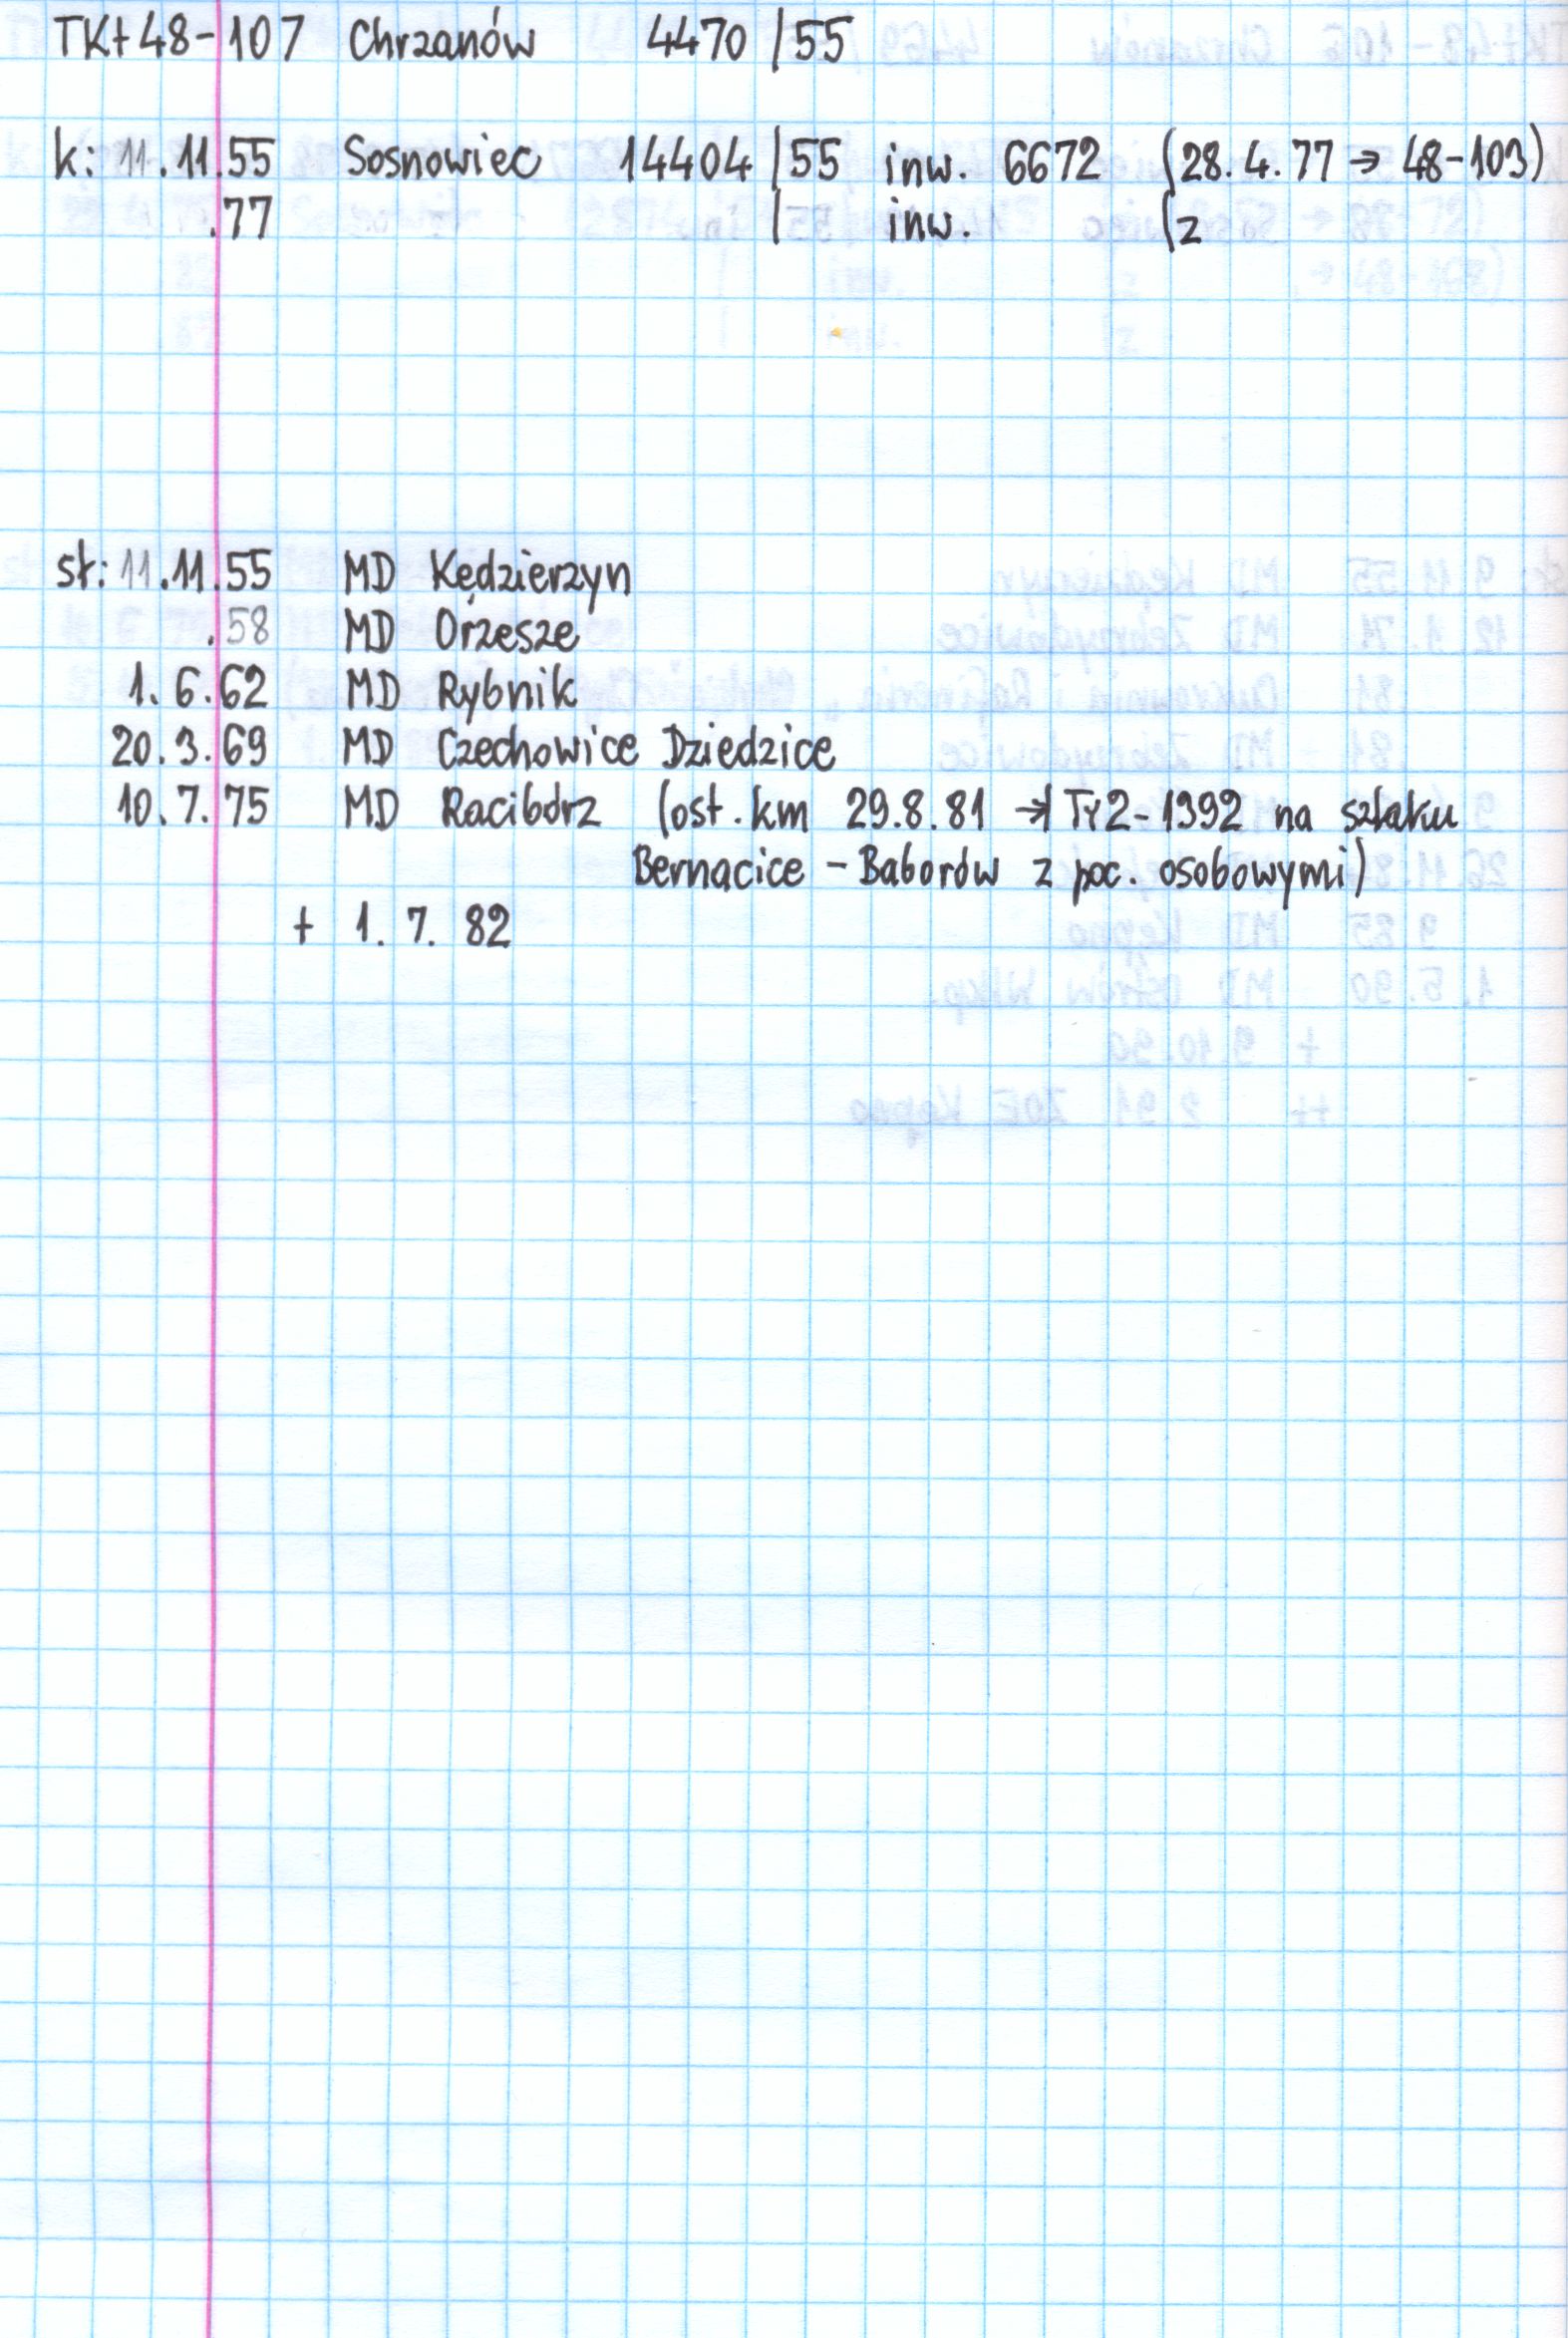 TKt48-107 Chrzanów 4470 /55
k: 11.11.55 Sosnowiec 14404 /55 inw. 6672 (28.4.77 → 48-103)
.77 / inw. (z
st: 11.11.55 MD Kędzierzyn
.58 MD Orzesze
1. 6.62 MD Rybnik
20.3.69 MD Czechowice Dziedzice
10.7.75 MD Racibórz (ost. km 29.8.81 →| Ty2-1992 na szlaku
Bernacice - Baborów z poc. osobowymi)
+ 1. 7. 82